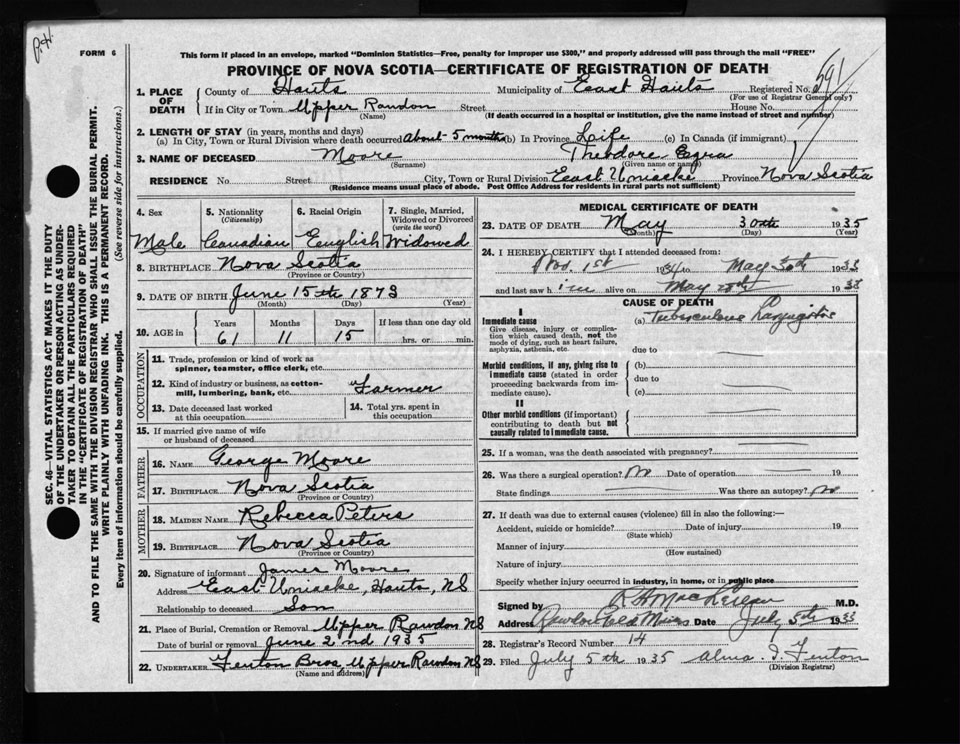 P.H.
FORM 6
This form if placed in an envelope, marked "Dominion Statistics—Free, penalty for improper use $300," and properly addressed will pass through the mail "FREE"
PROVINCE OF NOVA SCOTIA—CERTIFICATE OF REGISTRATION OF DEATH
1. PLACE OF DEATH
County of Hants Municipality of East Hants Registered No. 591
(For use of Registrar General only)
If in City or Town Upper Rawdon Street House No.
(Name) (If death occurred in a hospital or institution, give the name instead of street and number)
2. LENGTH OF STAY (in years, months and days)
(a) In City, Town or Rural Division where death occurred about 5 months (b) In Province Life (c) In Canada (if immigrant)
3. NAME OF DECEASED Moore Theodore Ezra
(Surname) (Given name or names)
RESIDENCE No. Street City, Town or Village East Uniacke Province Nova Scotia
(Residence means usual place of abode. Post Office Address for residents in rural parts not sufficient)
4. Sex 5. Nationality (Citizenship) 6. Racial Origin 7. Single, Married, Widowed or Divorced (write the word)
Male Canadian English Widowed
8. BIRTHPLACE Nova Scotia
(Province or Country)
9. DATE OF BIRTH June 15th 1873
(Month) (Day) (Year)
10. AGE in Years Months Days If less than one day old
61 11 15 hrs. or min.
OCCUPATION
11. Trade, profession or kind of work as spinner, teamster, office clerk, etc.
12. Kind of industry or business, as cotton-mill, lumbering, bank, etc. Farmer
13. Date deceased last worked at this occupation
14. Total yrs. spent in this occupation
15. If married give name of wife or husband of deceased
FATHER
16. NAME George Moore
17. BIRTHPLACE Nova Scotia
(Province or Country)
MOTHER
18. MAIDEN NAME Rebecca Peters
19. BIRTHPLACE Nova Scotia
(Province or Country)
20. Signature of informant James Moore
Address East Uniacke, Hants, NS
Relationship to deceased Son
21. Place of Burial, Cremation or Removal Upper Rawdon NS
Date of burial or removal June 2nd 1935
22. UNDERTAKER Fenton Bros Upper Rawdon NS
(Name and address)
MEDICAL CERTIFICATE OF DEATH
23. DATE OF DEATH May 30th 1935
(Month) (Day) (Year)
24. I HEREBY CERTIFY that I attended deceased from:
Nov. 1st 1934 to May 30th 1935
and last saw him alive on May 1935
CAUSE OF DEATH
I
Immediate cause (a) Tuberculous Laryngitis
Give disease, injury or complication which caused death, not the mode of dying, such as heart failure, asphyxia, asthenia, etc.
due to
Morbid conditions, if any, giving rise to immediate cause (stated in order proceeding backwards from immediate cause).
(b)
due to
(c)
II
Other morbid conditions (if important) contributing to death but not causally related to immediate cause.
25. If a woman, was the death associated with pregnancy?
26. Was there a surgical operation? No Date of operation 19
State findings Was there an autopsy? No
27. If death was due to external causes (violence) fill in also the following:—
Accident, suicide or homicide? Date of injury 19
(State which)
Manner of injury
(How sustained)
Nature of injury
Specify whether injury occurred in industry, in home, or in public place
Signed by M.D.
Address Rawdon Gold Mines Date July 5th 1935
28. Registrar's Record Number 14
29. Filed July 5th 1935 Alma I. Fenton
(Division Registrar)
SEC. 46—VITAL STATISTICS ACT MAKES IT THE DUTY
OF THE UNDERTAKER OR PERSON ACTING AS UNDER-
TAKER TO OBTAIN ALL THE PARTICULARS REQUIRED
IN THE "CERTIFICATE OF REGISTRATION OF DEATH"
AND TO FILE THE SAME WITH THE DIVISION REGISTRAR WHO SHALL ISSUE THE BURIAL PERMIT.
WRITE PLAINLY WITH UNFADING INK. THIS IS A PERMANENT RECORD.
Every item of information should be carefully supplied. (See reverse side for instructions.)